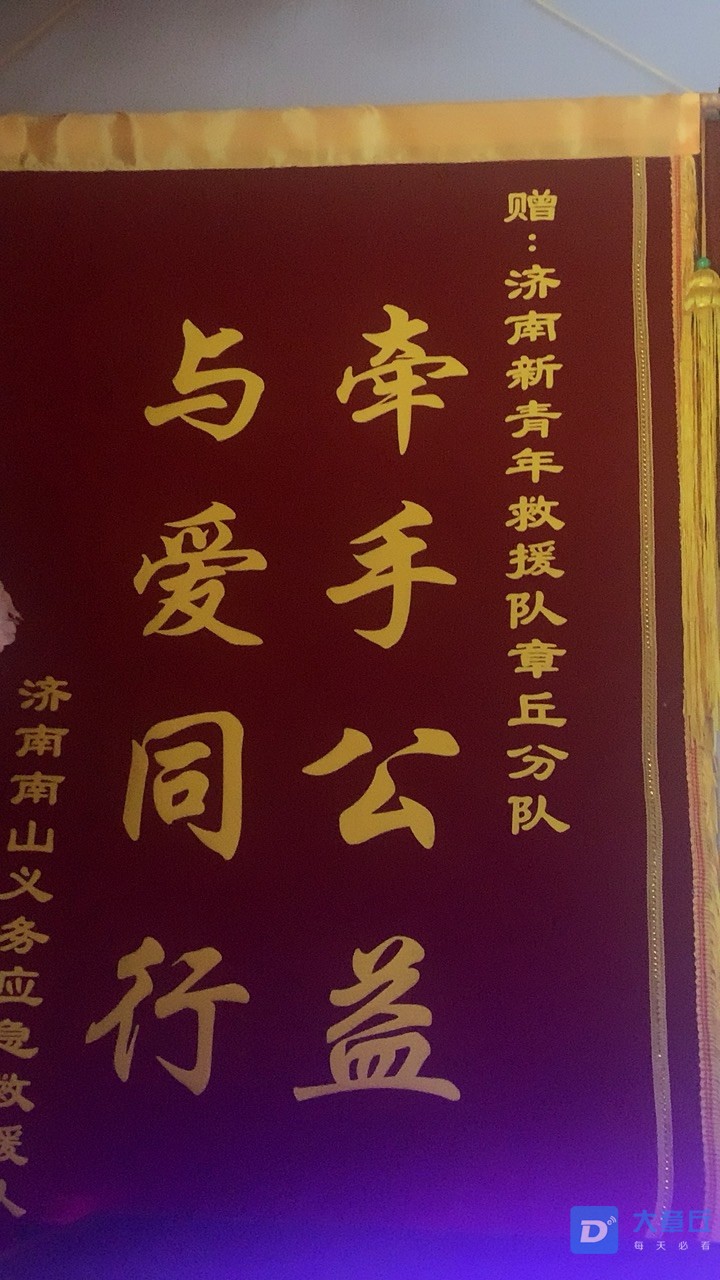 赠：济南新青年救援队章丘分队
牵手公益
与爱同行
济南南山义务应急救援人
大章丘
每天必看